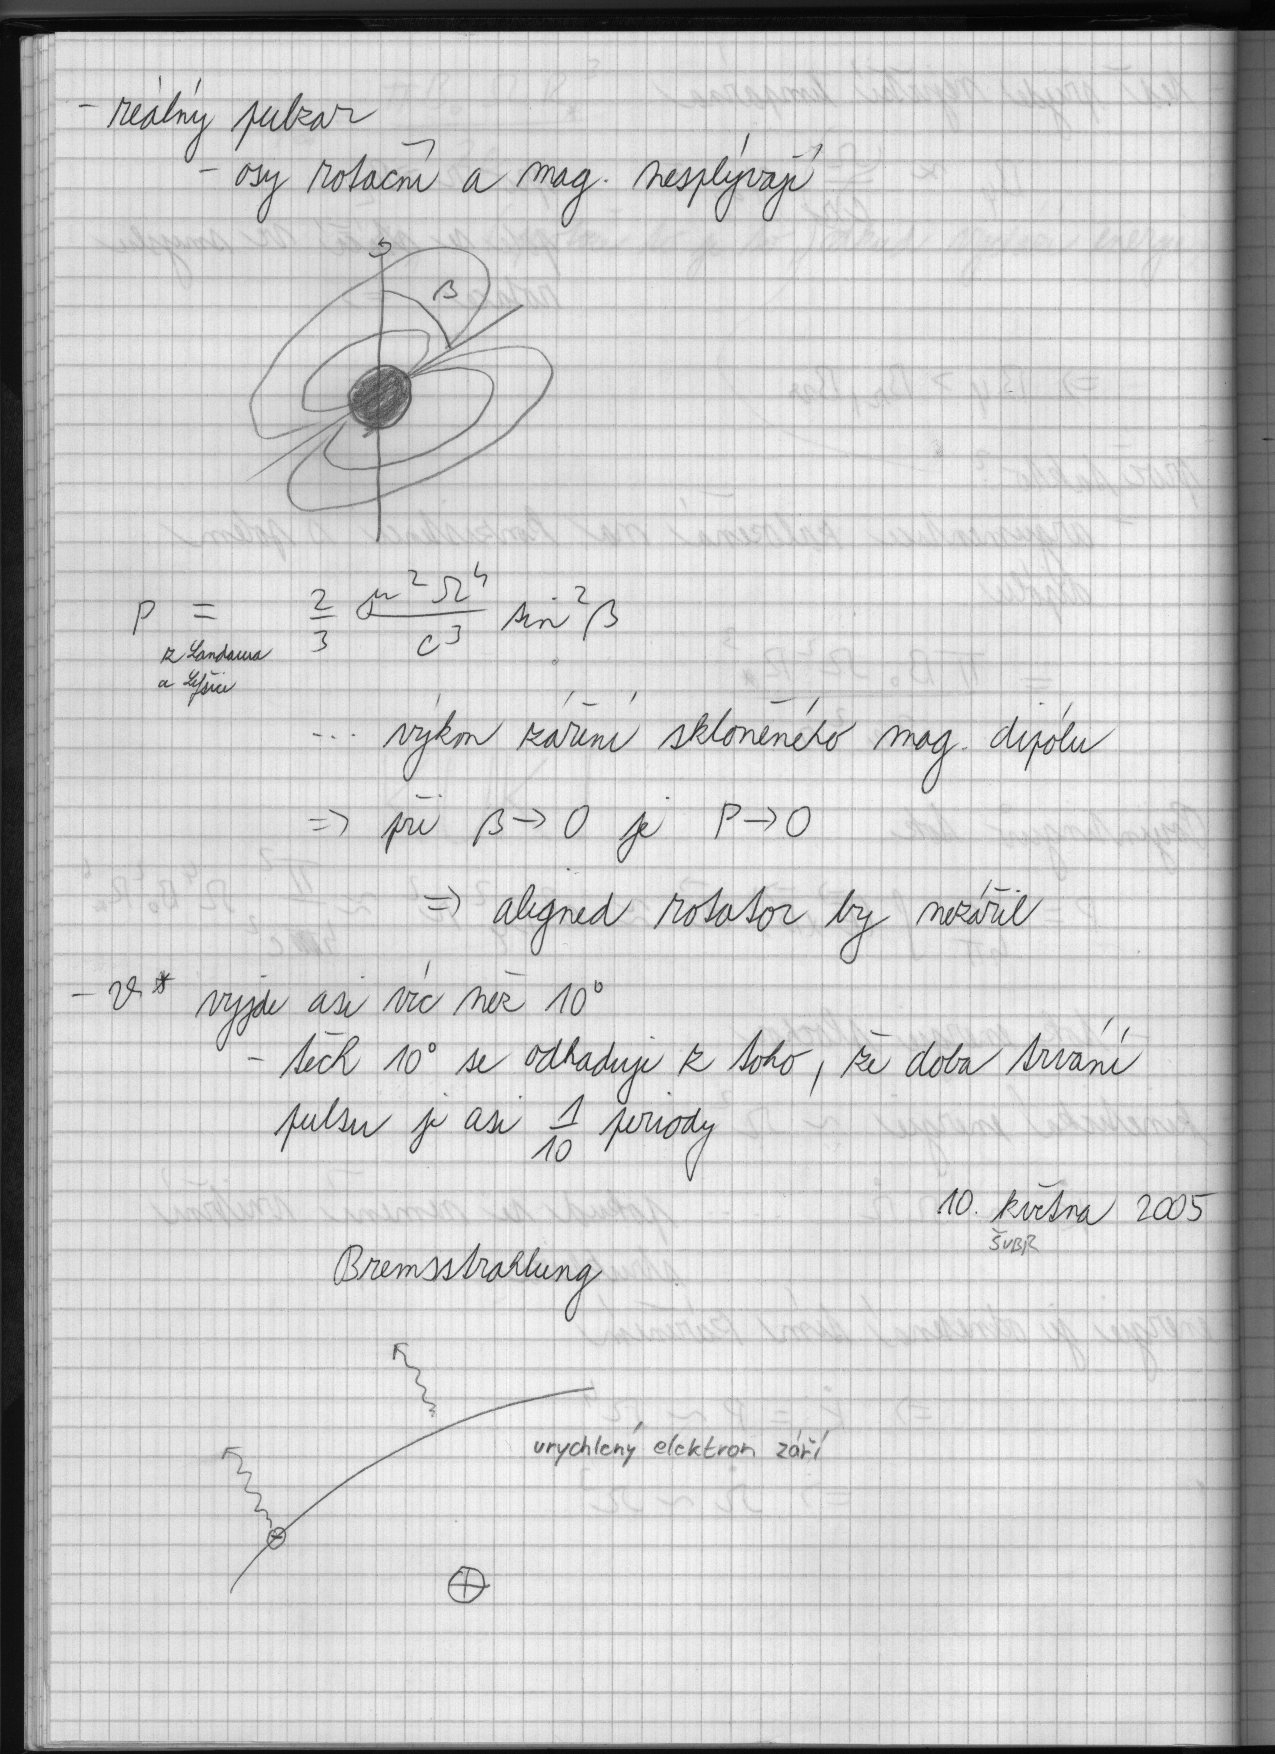 - reálný pulzar
- osy rotační a mag. nesplývají
β
P = 2/3 μ²Ω⁴/c³ sin²β
z Landaua
a Lifšice
... výkon záření skloněného mag. dipólu
=> při β→0 je P→0
=> aligned rotator by nezářil
- ϑ* vyjde asi víc než 10°
- těch 10° se odhaduje z toho, že doba trvání
pulsu je asi 1/10 periody
10. května 2005
ŠUBR
Bremsstrahlung
urychlený elektron září
-
+